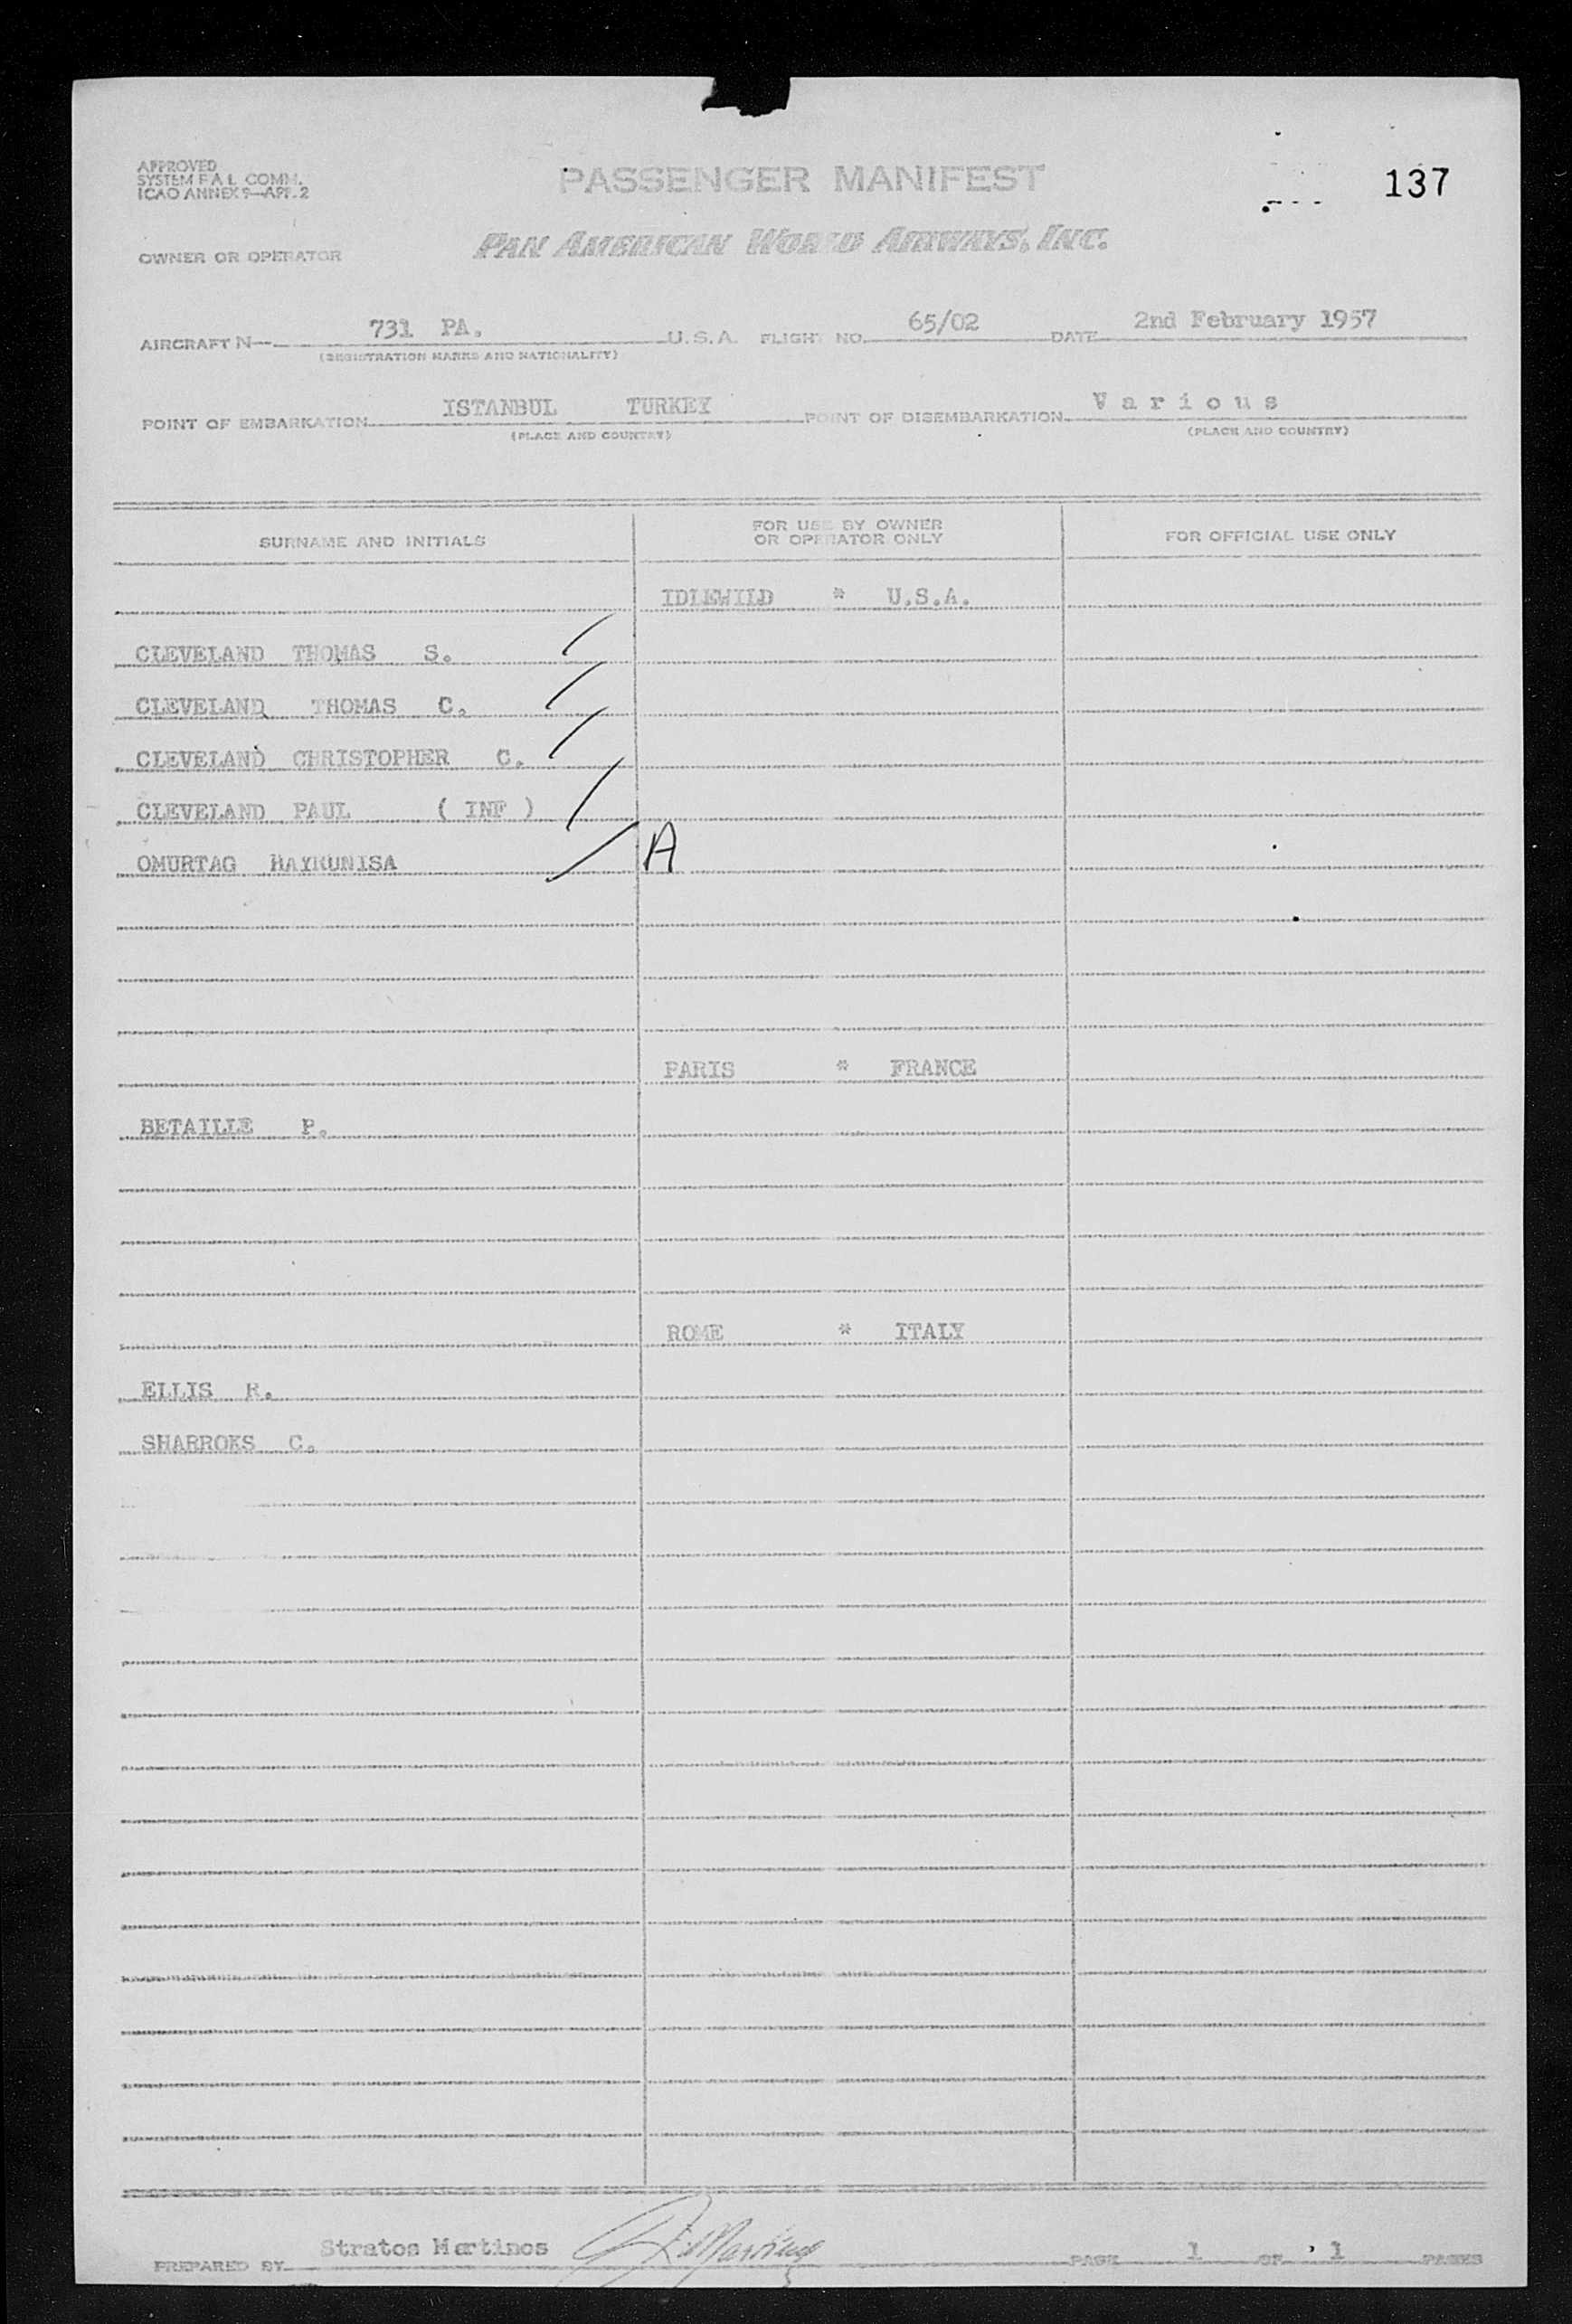 APPROVED
SYSTEM F A L COMM.
ICAO ANNEX 9—APP. 2
PASSENGER MANIFEST
137
OWNER OR OPERATOR
PAN AMERICAN WORLD AIRWAYS, INC.
AIRCRAFT N— 731 PA. U.S.A. FLIGHT NO. 65/02 DATE 2nd February 1957
(REGISTRATION MARKS AND NATIONALITY)
POINT OF EMBARKATION ISTANBUL TURKEY POINT OF DISEMBARKATION Various
(PLACE AND COUNTRY) (PLACE AND COUNTRY)
SURNAME AND INITIALS
FOR USE BY OWNER
OR OPERATOR ONLY
FOR OFFICIAL USE ONLY
IDLEWILD * U.S.A.
CLEVELAND THOMAS S.
CLEVELAND THOMAS C.
CLEVELAND CHRISTOPHER C.
CLEVELAND PAUL ( INF )
OMURTAG HAYRUNISA A
PARIS * FRANCE
BETAILLE P.
ROME * ITALY
ELLIS R.
SHARROKS C.
PREPARED BY Stratos Martinos PAGE 1 OF 1 PAGES